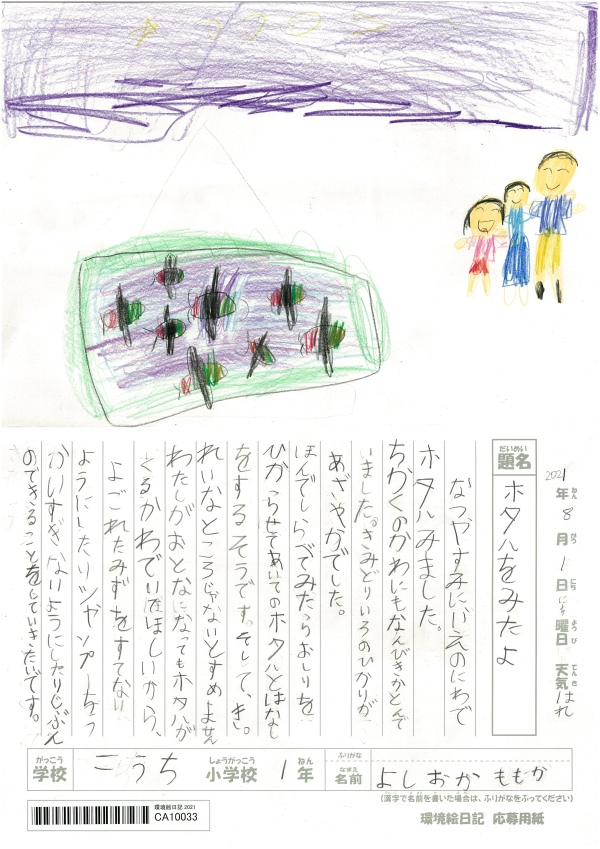 2021年ねん8月がつ1日にちにち曜日ようび天気てんきはれ
題名だいめい
ホタルをみたよ
なつやすみにいえのにわで
ホタルみました。
ちかくのかわにもなんびきかとんで
いました。きみどりいろのひかりが
あざやかでした。
ほんでしらべてみたらおしりを
ひからせてあいてのホタルとはなし
をするそうです。そして、き
れいなところじゃないとすめません
わたしがおとなになってもホタルが
くるかわでいてほしいから、
よごれたみずをすてない
ようにしたりシャンプーをつ
かいすぎないようにしたりじぶん
のできることをしていきたいです。
学校がっこう こうち 小学校しょうがっこう 1年ねん
ふりがな
名前なまえ よしおか ももか
(漢字で名前を書いた場合は、ふりがなをふってください)
環境絵日記 2021
CA10033
環境絵日記 応募用紙